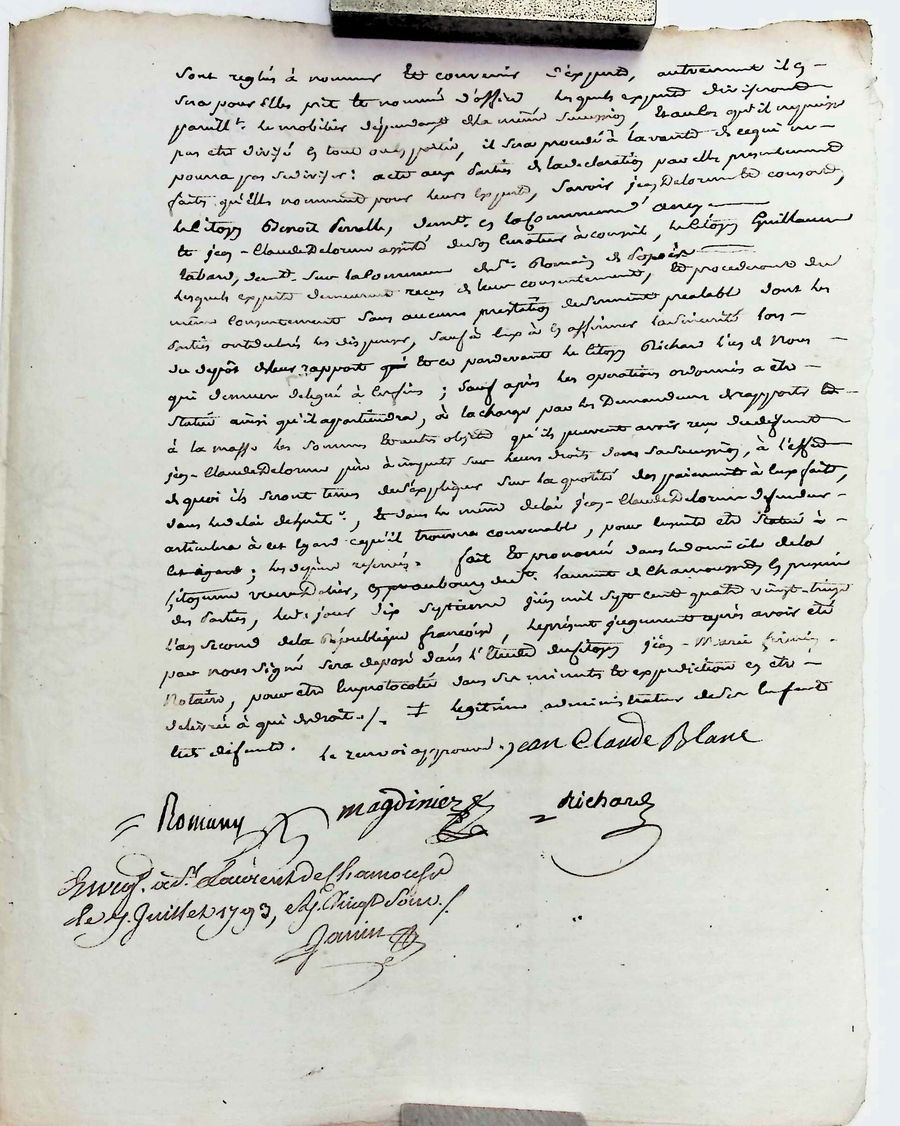 sont reglés à nommer et convenir d'experts, autrement il en
sera pour elles pris et nommé d'office lesquels experts diviseront
pareillt. le mobilier dépendant de la même succession, et au cas qu'il ne puisse
pas etre divisé en tout ou en partie, il sera procedé à la vente de ce qui ne
pourra pas se diviser : acte aux parties de la declaration par elle presentement
faite qu'elles nomment pour leurs experts, savoir jean Delorme et consorts,
le Citoyen Benoit demt. en la Commune d'
et jean-Claude Delorme assisté de son Curateur à conseil, le Citoyen Guillaume
demt. sur la Commune de St. Romain de popèe
lesquels experts demeurent reçus de leur consentement, et procederont du
même consentement sans aucune prestation de serment prealable dont les
parties ont dispensés, sauf à eux à en affirmer la sincerité lors
du depôt de leur rapport et ce pardevant le Citoyen Richard l'un de Nous
qui demeure delegué à ; sauf après les operations ordonnées a être
statué ainsi qu'il appartiendra, à la charge par les Demandeurs de rapporter
à la masse les sommes et autres objets qu'ils peuvent avoir reçu du défunt
jean-Claude Delorme père à imputer sur leurs droits dans sa succession, à l'effet
de quoi ils seront tenus de s'expliquer sur la quotité des paiements à eux faits,
dans le delai de huite., et dans le même delai jean-Claude Delorme defendeur
articulera à cet egard ce qu'il trouvera convenable, pour ensuite etre statué à
cet égard ; les depens reservés. fait et prononcé dans le domicile de la
Citoyenne veuve au faubourg de St. laurent de Chamousset en presence
des parties, les jour dix septieme juin mil sept cent quatre vingt-treize
l'an second de la République françoise, le present jugement après avoir été
par nous signé sera deposé dans l'Etude du Citoyen jean-Marie
Notaire, pour etre protocolé dans ses minutes et expedition en etre
delivrée à qui de droit./. ‡ legitime administrateur de ses enfant
le renvoi approuvé. jean Claude Blanc
Romany magdinier Richard
Enregt. à St. Laurent de Chamousset
le 7. Juillet 1793, Vingt Sous./.
Janin